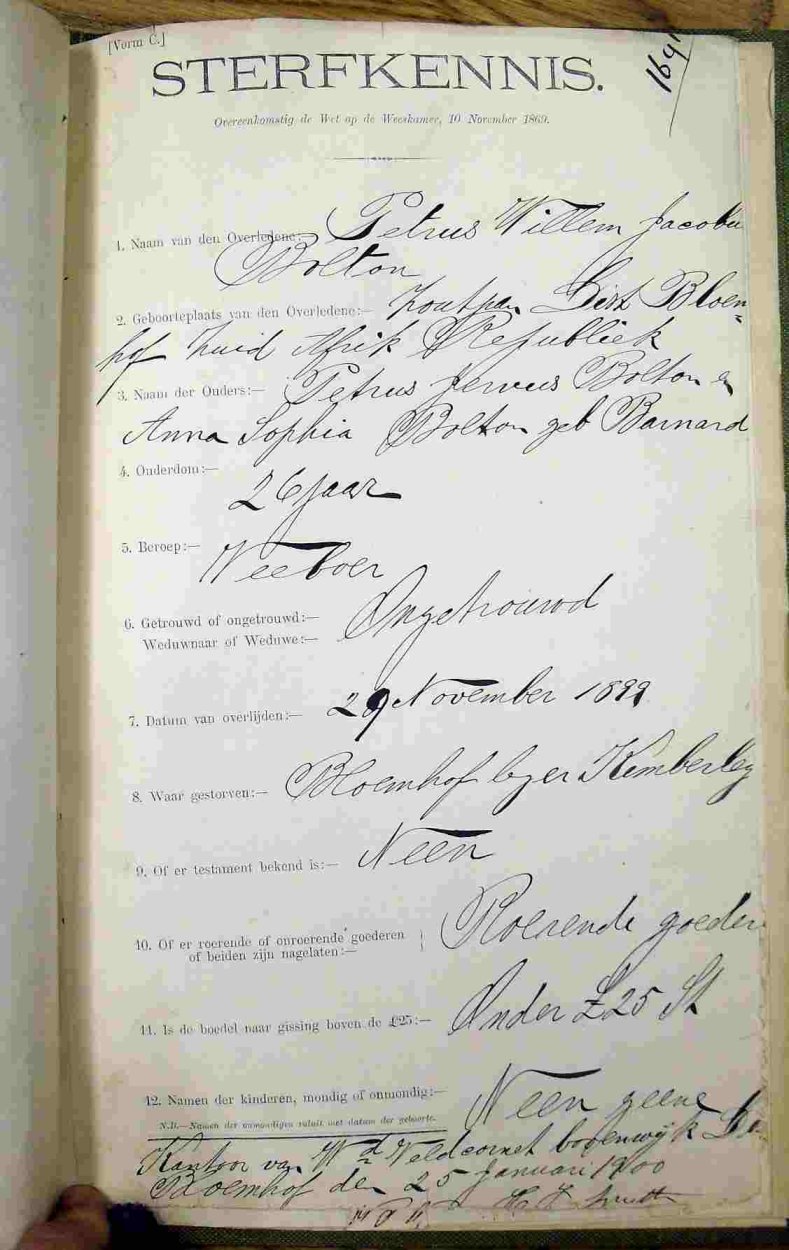 [Vorm C.]
1691
STERFKENNIS.
Overeenkomstig de Wet op de Weeskamer, 10 November 1869.
1. Naam van den Overledene:— Petrus Willem Jacobu
Bolton
2. Geboorteplaats van den Overledene:— Zoutpan Dist Bloem=
hof Zuid Afrik Republiek
3. Naam der Ouders:— Petrus Bolton en
Anna Sophia Bolton geb Barnard
4. Ouderdom:—
26 jaar
5. Beroep:—
Veeboer
6. Getrouwd of ongetrouwd:— Ongetrouwd
Weduwnaar of Weduwe:—
7. Datum van overlijden:— 29 November 1899
8. Waar gestorven:— Bloemhof lager Kimberley
9. Of er testament bekend is:— Neen
10. Of er roerende of onroerende goederen
of beiden zijn nagelaten:— Roerende goeder
11. Is de boedel naar gissing boven de £25:— Onder £25 St
12. Namen der kinderen, mondig of onmondig:— Neen geene
N.B.—Namen der onmondigen voluit met datum der geboorte.
Kantoor van Wd Veldcornet bovenwijk
Bloemhof den 25 Januari 1900